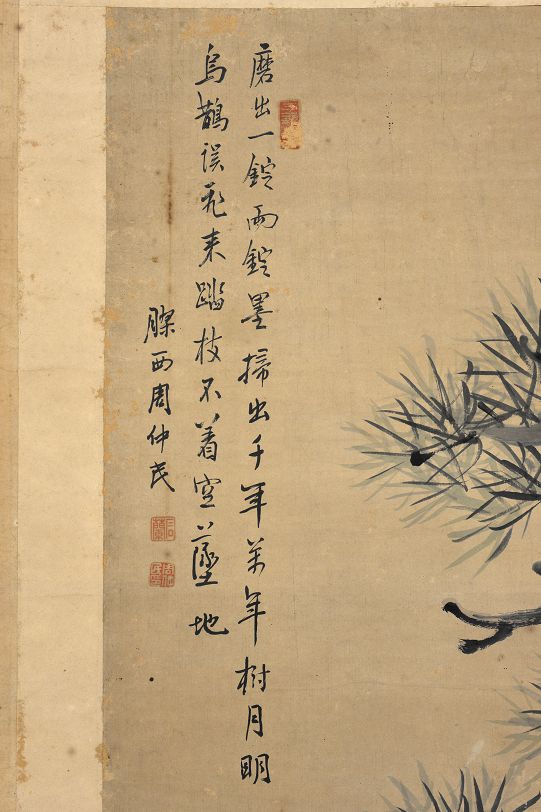 磨出一錠兩錠墨掃出千年萬年樹月明
烏鵲誤飛来踏枝不着空墜地
西周仲民